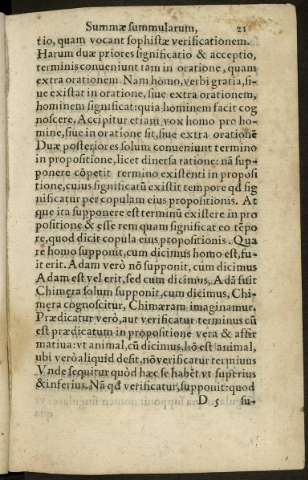 Summæ summularum, 21
tio, quam vocant sophistæ verificationem.
Harum duæ priores significatio & acceptio,
terminis conveniunt tàm in oratione, quam
extra orationem. Nam homo, verbi gratia, si-
ue existat in oratione, siue extra orationem,
hominem significat: quia hominem facit cog
noscere, Accipitur etiam vox homo pro ho-
mine, siue in oratione sit, siue extra orationẽ
Duæ posteriores solum conveniunt termino
in propositione, licet diuersa ratione: nã sup-
ponere cõpetit termino existenti in proposi
tione, cuius significatũ existit tempore qđ sig
nificatur per copulam eius propositionis. At
que ita supponere est terminũ existere in pro
positione & esse rem quam significat eo tẽpo
re, quod dicit copula eius propositionis. Qua
re homo supponit, cum dicimus homo est, fu-
it erit. Adam verò nõ supponit, cum dicimus
Adam est vel erit, sed cum dicimus, Adã fuit
Chimera solum supponit, cum dicimus, Chi-
mera cognoscitur, Chimæram imaginamur.
Prædicatur verò, aut verificatur terminus cũ
est prædicatum in propositione vera & affir
matiua: vt animal, cũ dicimus, hõ est animal,
ubi verò aliquid desit, nõ verificatur terminus
Vnde sequitur quòd hæc se habẽt vt superius
& inferius. Nã qđ verificatur, supponit: quod
D 5 su-